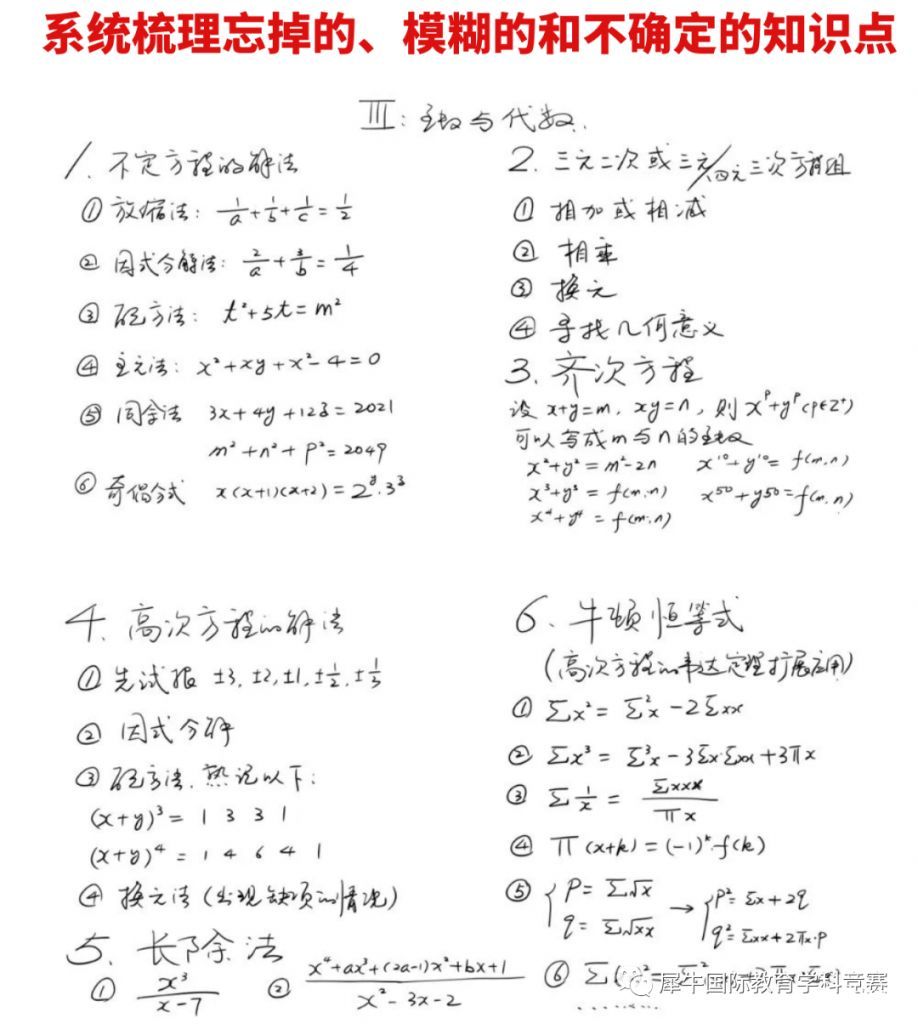 系统梳理忘掉的、模糊的和不确定的知识点
III: 函数与代数.
1. 不定方程的解法
① 放缩法: 1/a + 1/b + 1/c = 1/2
② 因式分解法: 2/a + 3/b = 1/4
③ 配方法: t²+5t=m²
④ 主元法: x²+xy+x²-4=0
⑤ 同余法 3x+4y+12z=2021
m²+n²+p²=2049
⑥ 奇偶分式 x(x+1)(x+2)=2^y·3^z
2. 三元二次或三元/四元三次方程组
① 相加或相减
② 相乘
③ 换元
④ 寻找几何意义
3. 齐次方程
设 x+y=m, xy=n, 则 x^p+y^p (p∈Z⁺)
可以写成m与n的函数
x²+y²=m²-2n x¹⁰+y¹⁰=f(m,n)
x³+y³=f(m,n) x⁵⁰+y⁵⁰=f(m,n)
x⁴+y⁴=f(m,n)
4. 高次方程的解法
① 先试根 ±3, ±2, ±1, ±1/2, ±1/3
② 因式分解
③ 配方法. 熟记以下:
(x+y)³ = 1 3 3 1
(x+y)⁴ = 1 4 6 4 1
④ 换元法 (出现缺项的情况)
5. 长除法
① x³/(x-7) ② (x⁴+ax³+(2a-1)x²+bx+1)/(x²-3x-2)
6. 牛顿恒等式
(高次方程的韦达定理扩展应用)
① Σx² = Σ²x - 2Σxx
② Σx³ = Σ³x - 3Σx·Σxx + 3πx
③ Σ1/x = Σxxx/πx
④ π(x+k) = (-1)^k·f(k)
⑤ { p=Σ√x q=Σ√xx → { p²=Σx+2q q²=Σxx+2πx·p
⑥ Σ
犀牛国际教育学科竞赛